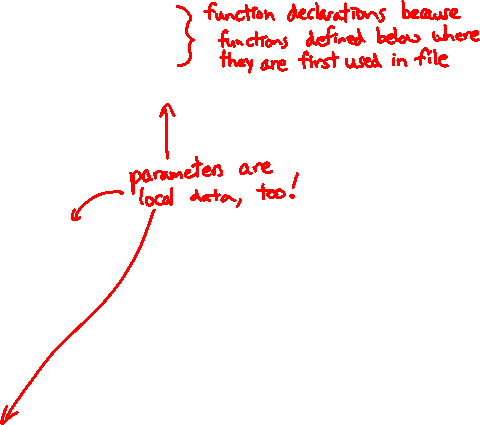 function declarations because
functions defined below where
they are first used in file
parameters are
local data, too!